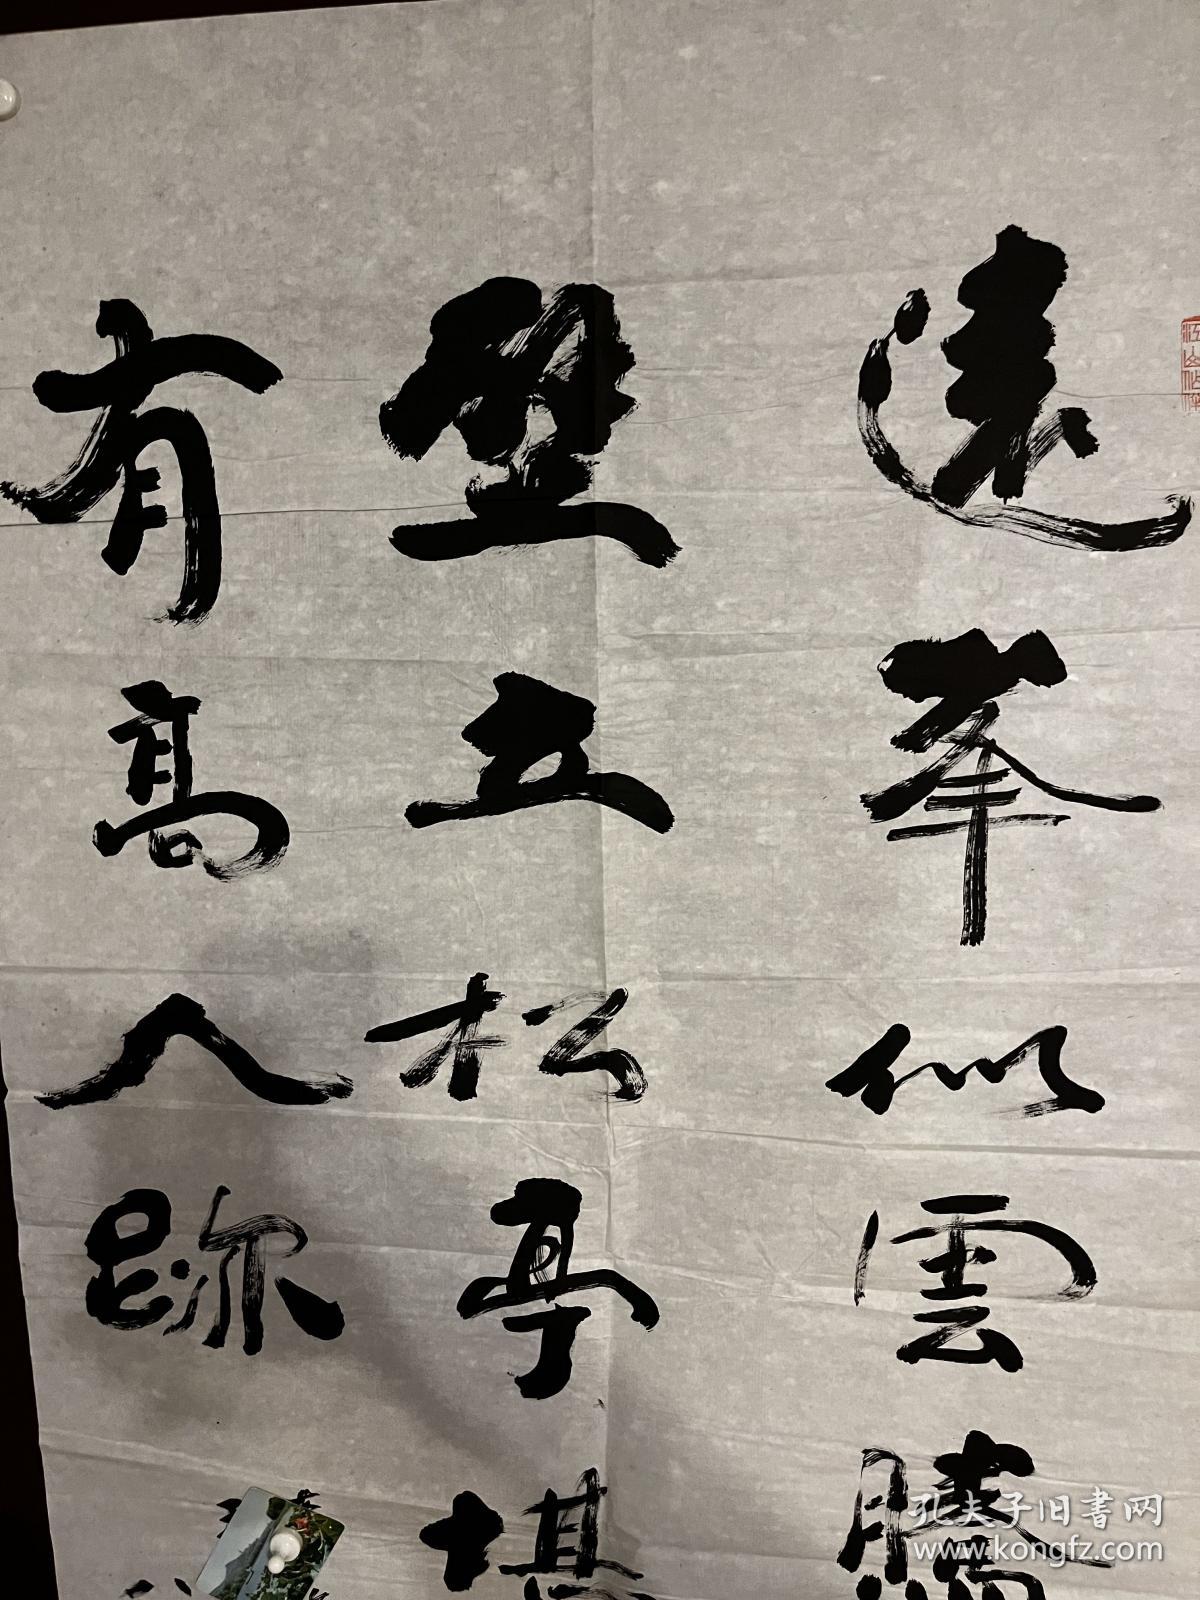 遠峯似雲騰
壁立松亭堪
有高人跡
江山代序
孔夫子旧书网
www.kongfz.com